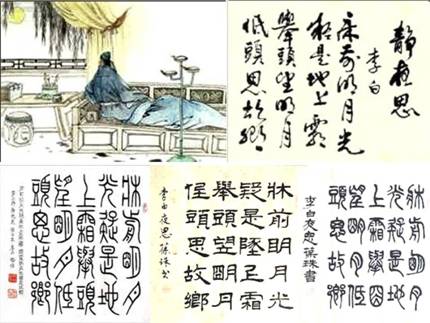 靜夜思
李白
床前明月光
疑是地上霜
舉頭望明月
低頭思故鄉
牀前明月
光疑是地
上霜舉頭
望明月低
頭思故鄉
牀前明月光
疑是墬上霜
舉頭望明月
低頭思故鄉
李白夜思葆珠书
牀前明月
光疑是地
上霜舉頭
望明月低
頭思故鄉
李白夜思葆珠書